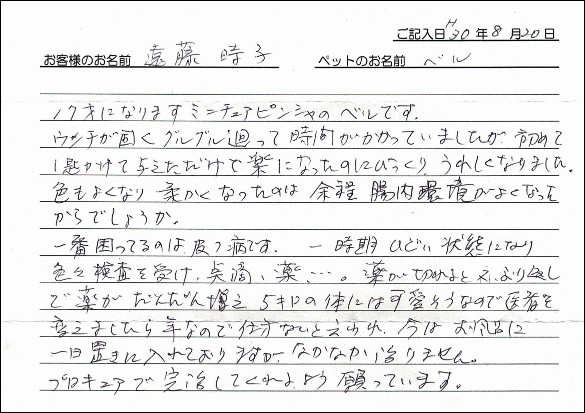 ご記入日 H30年8月20日
お客様のお名前 遠藤 時子 ペットのお名前 ベル
12才になりますミニチュアピンシャのベルです。
ウンチが固くグルグル廻って時間がかかっていましたが、初めて
1匙かけて与えただけで楽になったのにびっくりうれしくなりました。
色もよくなり柔かくなったのは余程腸内環境がよくなった
からでしょうか。
一番困ってるのは皮フ病です。 一時期ひどい状態になり
色々検査を受け、点滴、薬…。薬が切れると又、ぶり返し
で薬がだんだん増え5キロの体には可愛そうなので医者を
変えましたら年なので仕方ないと云われ、今はお風呂に
一日置きに入れておりますが、なかなか治りません。
プロキュアで完治してくれるよう願っています。